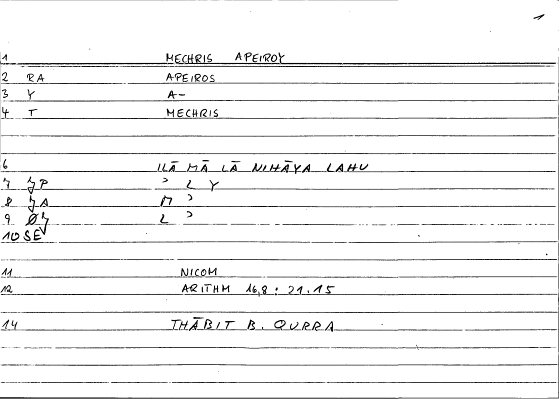 1
1 MECHRIS APEIROY
2 RA APEIROS
3 Y A-
4 T MECHRIS
6 ILĀ MĀ LĀ NIHĀYA LAHU
7 P ʾ L Y
8 A M ʾ
9 L ʾ
10 SE
11 NICOM
12 ARITHM 16,8 : 21.15
14 THĀBIT B. QURRA